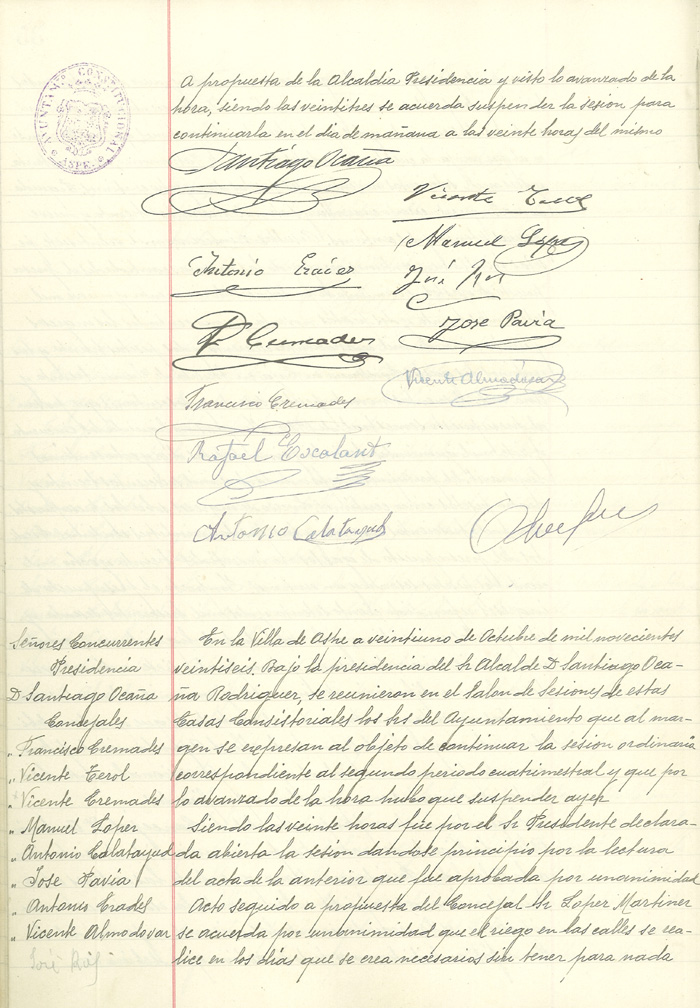 AYUNTAMTO CONSTITUCIONAL
ASPE
A propuesta de la Alcaldía Presidencia y visto lo avanzado de la
hora, siendo las veintitres se acuerda suspender la sesion para
continuarla en el dia de mañana a las veinte horas del mismo
Santiágo Ocaña
Vicente Terol
Manuel Lopez
Antonio Erades
José
Cremades
Jose Pavia
Vicente Almodovar
Francisco Cremades
Rafael Escolant
Antonio Calatayud
Señores Concurrentes
Presidencia
D Santiago Ocaña
Concejales
„ Francisco Cremades
„ Vicente Terol
„ Vicente Cremades
„ Manuel Loper
„ Antonio Calatayud
„ Jose Pavia
„ Antonio Erades
„ Vicente Almodovar
José
En la Villa de Aspe a veintiuno de Octubre de mil novecientos
veintiseis. Bajo la presidencia del Sr Alcalde D Santiago Oca-
ña Rodriguer, se reunieron en el Salon de Sesiones de estas
Casas Consistoriales los Srs del Ayuntamiento que al mar-
gen se expresan al objeto de continuar la sesion ordinaria
correspondiente al segundo periodo cuatrimestral y que por
lo avanzado de la hora hubo que suspender ayer
Siendo las veinte horas fue por el Sr Presidente declara-
da abierta la sesión dandose principio por la lectura
del acta de la anterior que fue aprobada por unanimidad
Acto seguido a propuesta del Concejal Sr Loper Martiner
se acuerda por unanimidad que el riego en las calles se rea-
lice en los dias que se crea necesarios sin tener para nada